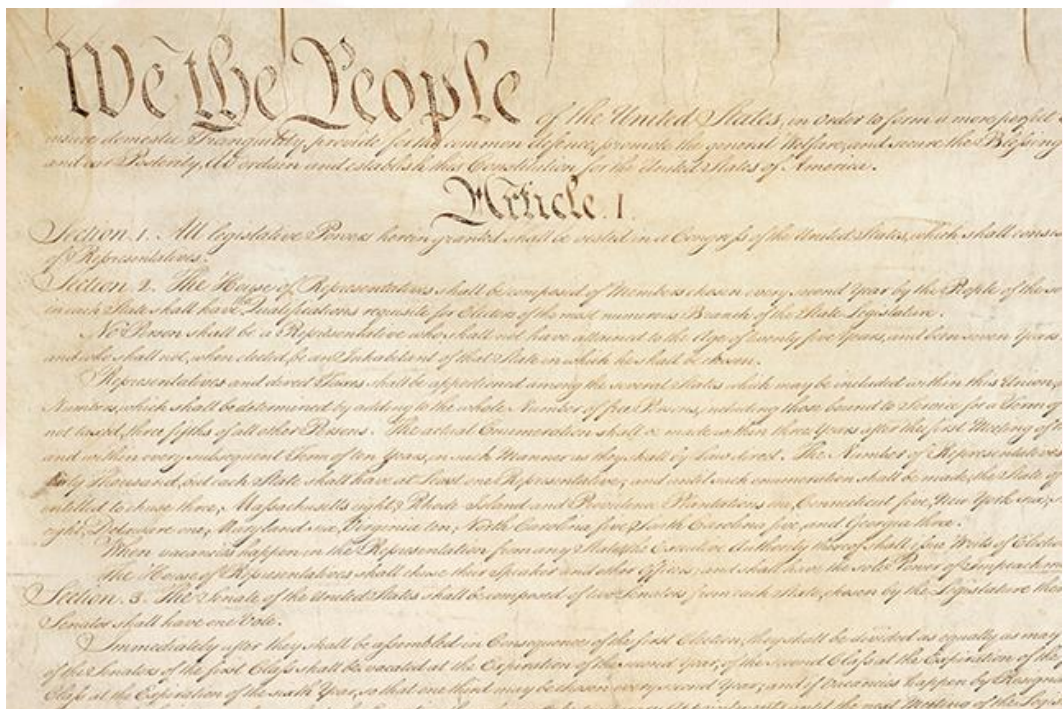 We the People
of the United States, in Order to form a more perfect
insure domestic Tranquility, provide for the common defence, promote the general Welfare, and secure the Blessing
and our Posterity, do ordain and establish this Constitution for the United States of America.
Article. I.
Section. 1. All legislative Powers herein granted shall be vested in a Congress of the United States, which shall consis
of Representatives.
Section. 2. The House of Representatives shall be composed of Members chosen every second Year by the People of the se
in each State shall have the Qualifications requisite for Electors of the most numerous Branch of the State Legislature.
No Person shall be a Representative who shall not have attained to the Age of twenty five Years, and been seven Years
and who shall not, when elected, be an Inhabitant of that State in which he shall be chosen.
Representatives and direct Taxes shall be apportioned among the several States which may be included within this Union,
Numbers, which shall be determined by adding to the whole Number of free Persons, including those bound to Service for a Term of
not taxed, three fifths of all other Persons. The actual Enumeration shall be made within three Years after the first Meeting of t
and within every subsequent Term of ten Years, in such Manner as they shall by Law direct. The Number of Representatives
thirty Thousand, but each State shall have at Least one Representative; and until such enumeration shall be made, the State of
entitled to chuse three, Massachusetts eight, Rhode Island and Providence Plantations one, Connecticut five, New York six,
eight, Delaware one, Maryland six, Virginia ten, North Carolina five, South Carolina five, and Georgia three.
When vacancies happen in the Representation from any State, the Executive Authority thereof shall issue Writs of Electio
The House of Representatives shall chuse their Speaker and other Officers; and shall have the sole Power of Impeachme
Section. 3. The Senate of the United States shall be composed of two Senators from each State, chosen by the Legislature the
Senator shall have one Vote.
Immediately after they shall be assembled in Consequence of the first Election, they shall be divided as equally as may
of the Senators of the first Class shall be vacated at the Expiration of the second Year, of the second Class at the Expiration of the
Class at the Expiration of the sixth Year, so that one third may be chosen every second Year; and if Vacancies happen by Resigna
until the next Meeting of the Legis